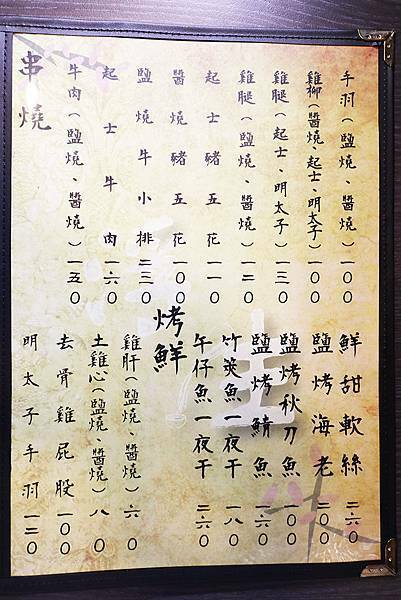 串燒
手羽(鹽燒、醬燒)一〇〇
雞柳(醬燒、起士、明太子)一〇〇
雞腿(起士、明太子)一三〇
雞腿(鹽燒、醬燒)一二〇
起士豬五花一一〇
醬燒豬五花一〇〇
鹽燒牛小排二三〇
起士牛肉一六〇
牛肉(鹽燒、醬燒)一五〇
雞肝(鹽燒、醬燒)六〇
土雞心(鹽燒、醬燒)八〇
去骨雞屁股一〇〇
明太子手羽一二〇
烤鮮
鮮甜軟絲二六〇
鹽烤海老二〇〇
鹽烤秋刀魚一〇〇
鹽烤鯖魚一六〇
竹莢魚一夜干一八〇
午仔魚一夜干二六〇